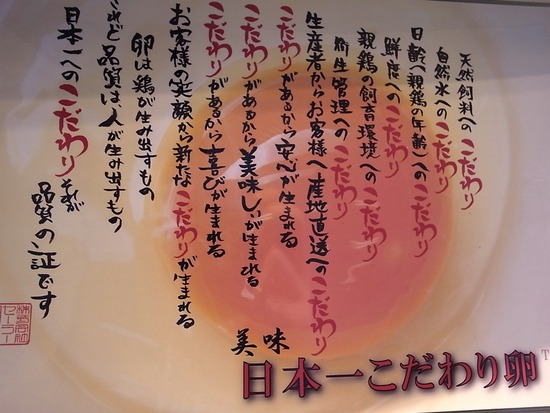 天然飼料へのこだわり
自然水へのこだわり
日齢へ(親鶏の年齢)へのこだわり
鮮度へのこだわり
親鶏の飼育環境へのこだわり
衛生管理へのこだわり
生産者からお客様へ産地直送へのこだわり
こだわりがあるから安心が生まれる
こだわりがあるから美味しいが生まれる
こだわりがあるから喜びが生まれる
お客様の笑顔から新たなこだわりが生まれる
卵は鶏が生み出すもの
されど品質は、人が生み出すもの
日本一へのこだわりそれが
品質の証です
美味
日本一こだわり卵
株式会社セーラー